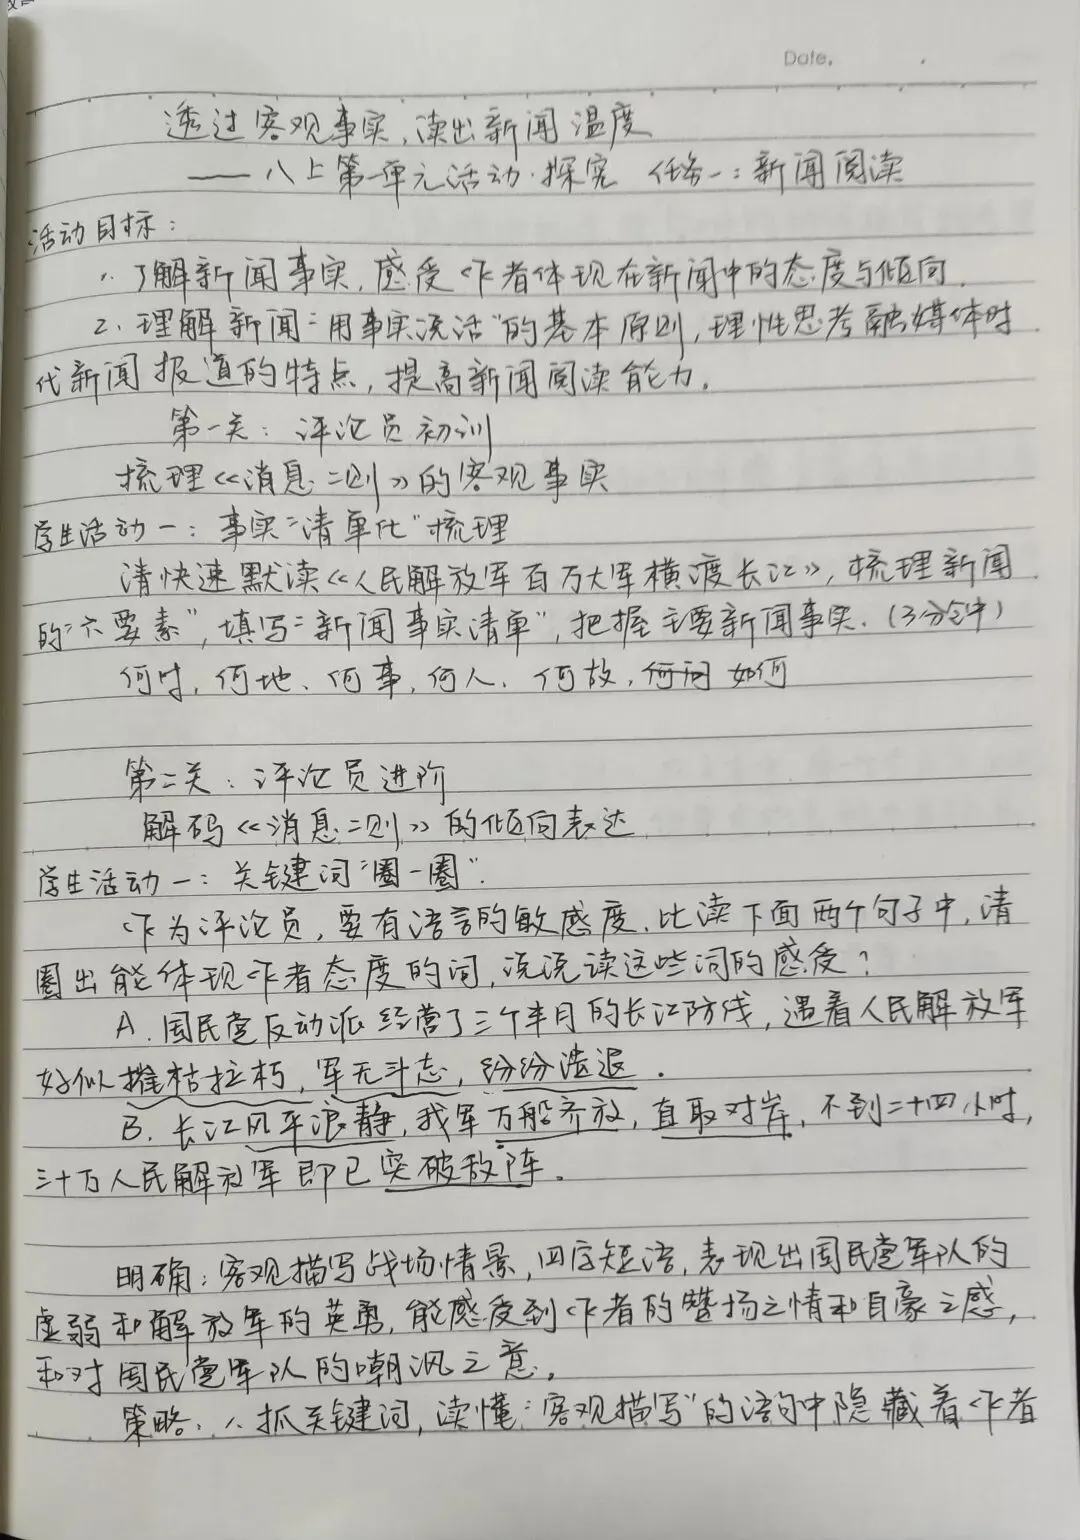 Date.
透过客观事实,读出新闻温度
——八上第一单元活动·探究 任务一:新闻阅读
活动目标:
1.了解新闻事实,感受作者体现在新闻中的态度与倾向.
2.理解新闻“用事实说话”的基本原则,理性思考融媒体时
代新闻报道的特点,提高新闻阅读能力。
第一关:评论员初训
梳理《消息二则》的客观事实
学生活动一:事实“清单化”梳理
请快速默读《人民解放军百万大军横渡长江》,梳理新闻
的“六要素”,填写“新闻事实清单”,把握主要新闻事实.(3分钟)
何时,何地、何事,何人、何故,何 如何
第二关:评论员进阶
解码《消息二则》的倾向表达
学生活动一:关键词“圈一圈”.
作为评论员,要有语言的敏感度.比读下面两个句子中,请
圈出能体现作者态度的词,说说读这些词的感受?
A.国民党反动派经营了三个半月的长江防线,遇着人民解放军
好似摧枯拉朽,军无斗志,纷纷溃退.
B.长江风平浪静,我军万船齐放,直取对岸,不到二十四小时,
三十万人民解放军即已突破敌阵。
明确:客观描写战场情景,四字短语,表现出国民党军队的
虚弱和解放军的英勇,能感受到作者的赞扬之情和自豪之感,
和对国民党军队的嘲讽之意。
策略:1.抓关键词,读懂“客观描写”的语句中隐藏着作者